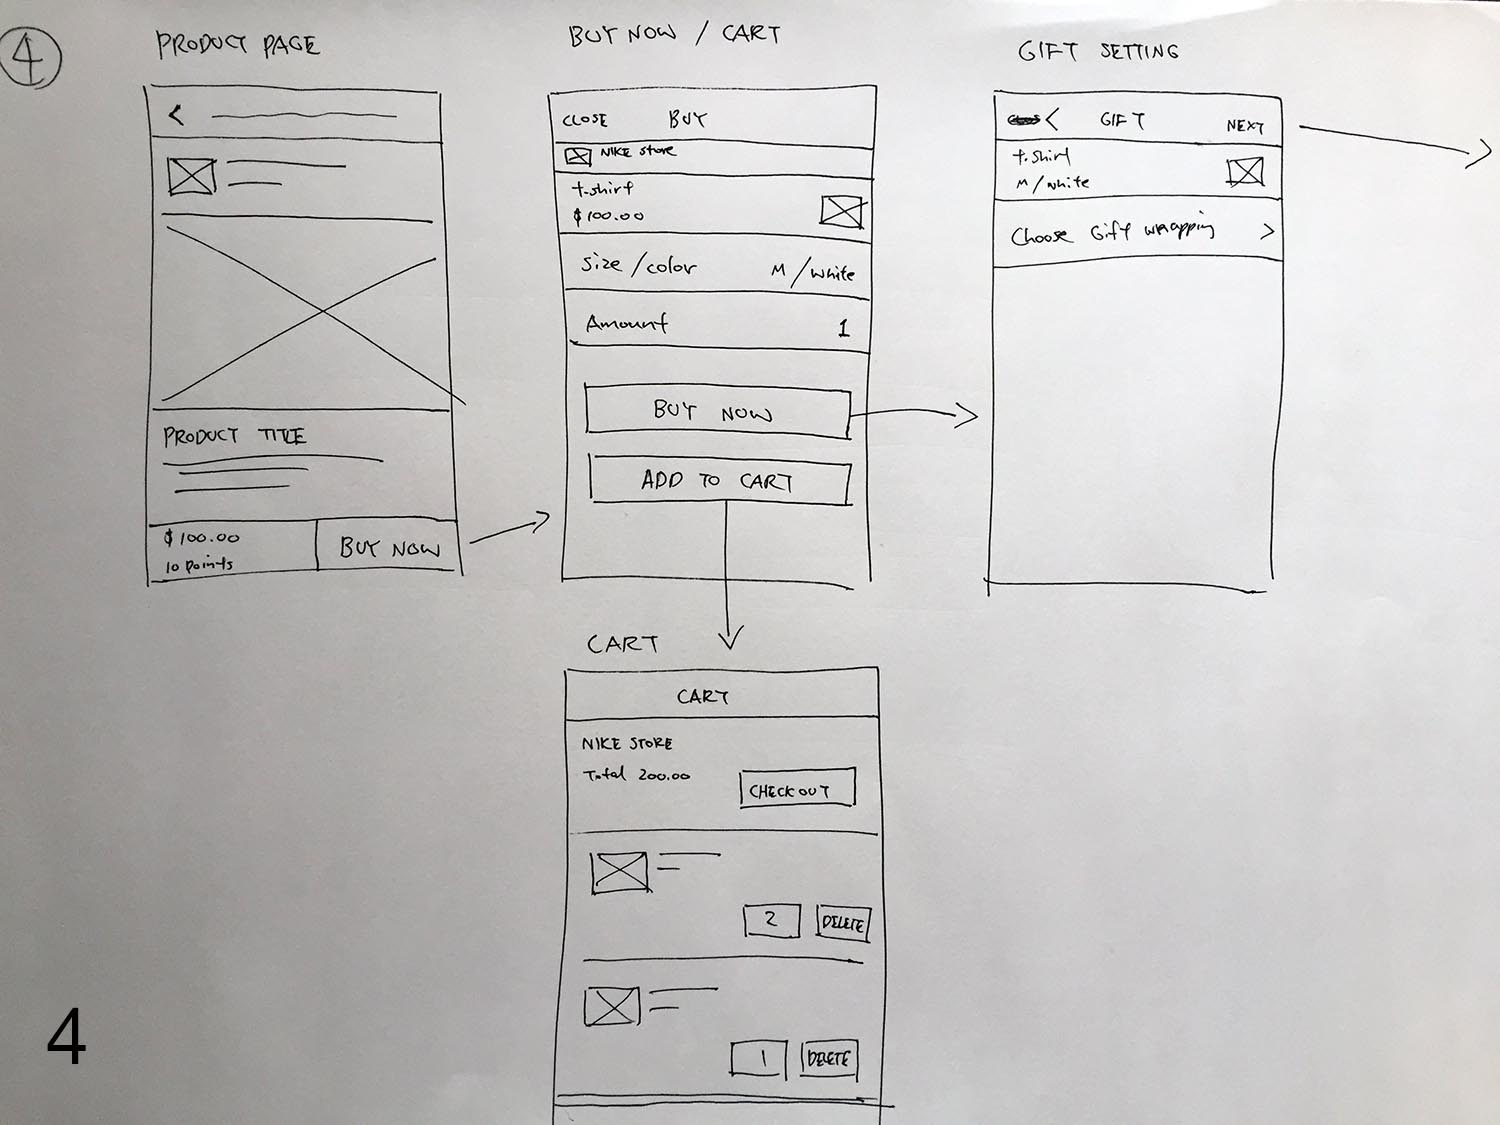 4
PRODUCT PAGE
<
PRODUCT TITLE
$100.00
10 points
BUY NOW
BUY NOW / CART
CLOSE BUY
NIKE Store
t-shirt
$100.00
Size/color M/white
Amount 1
BUY NOW
ADD TO CART
GIFT SETTING
< GIFT NEXT
t.shirt
M/white
Choose Gift wrapping >
CART
CART
NIKE STORE
Total 200.00
CHECKOUT
2 DELETE
1 DELETE
4